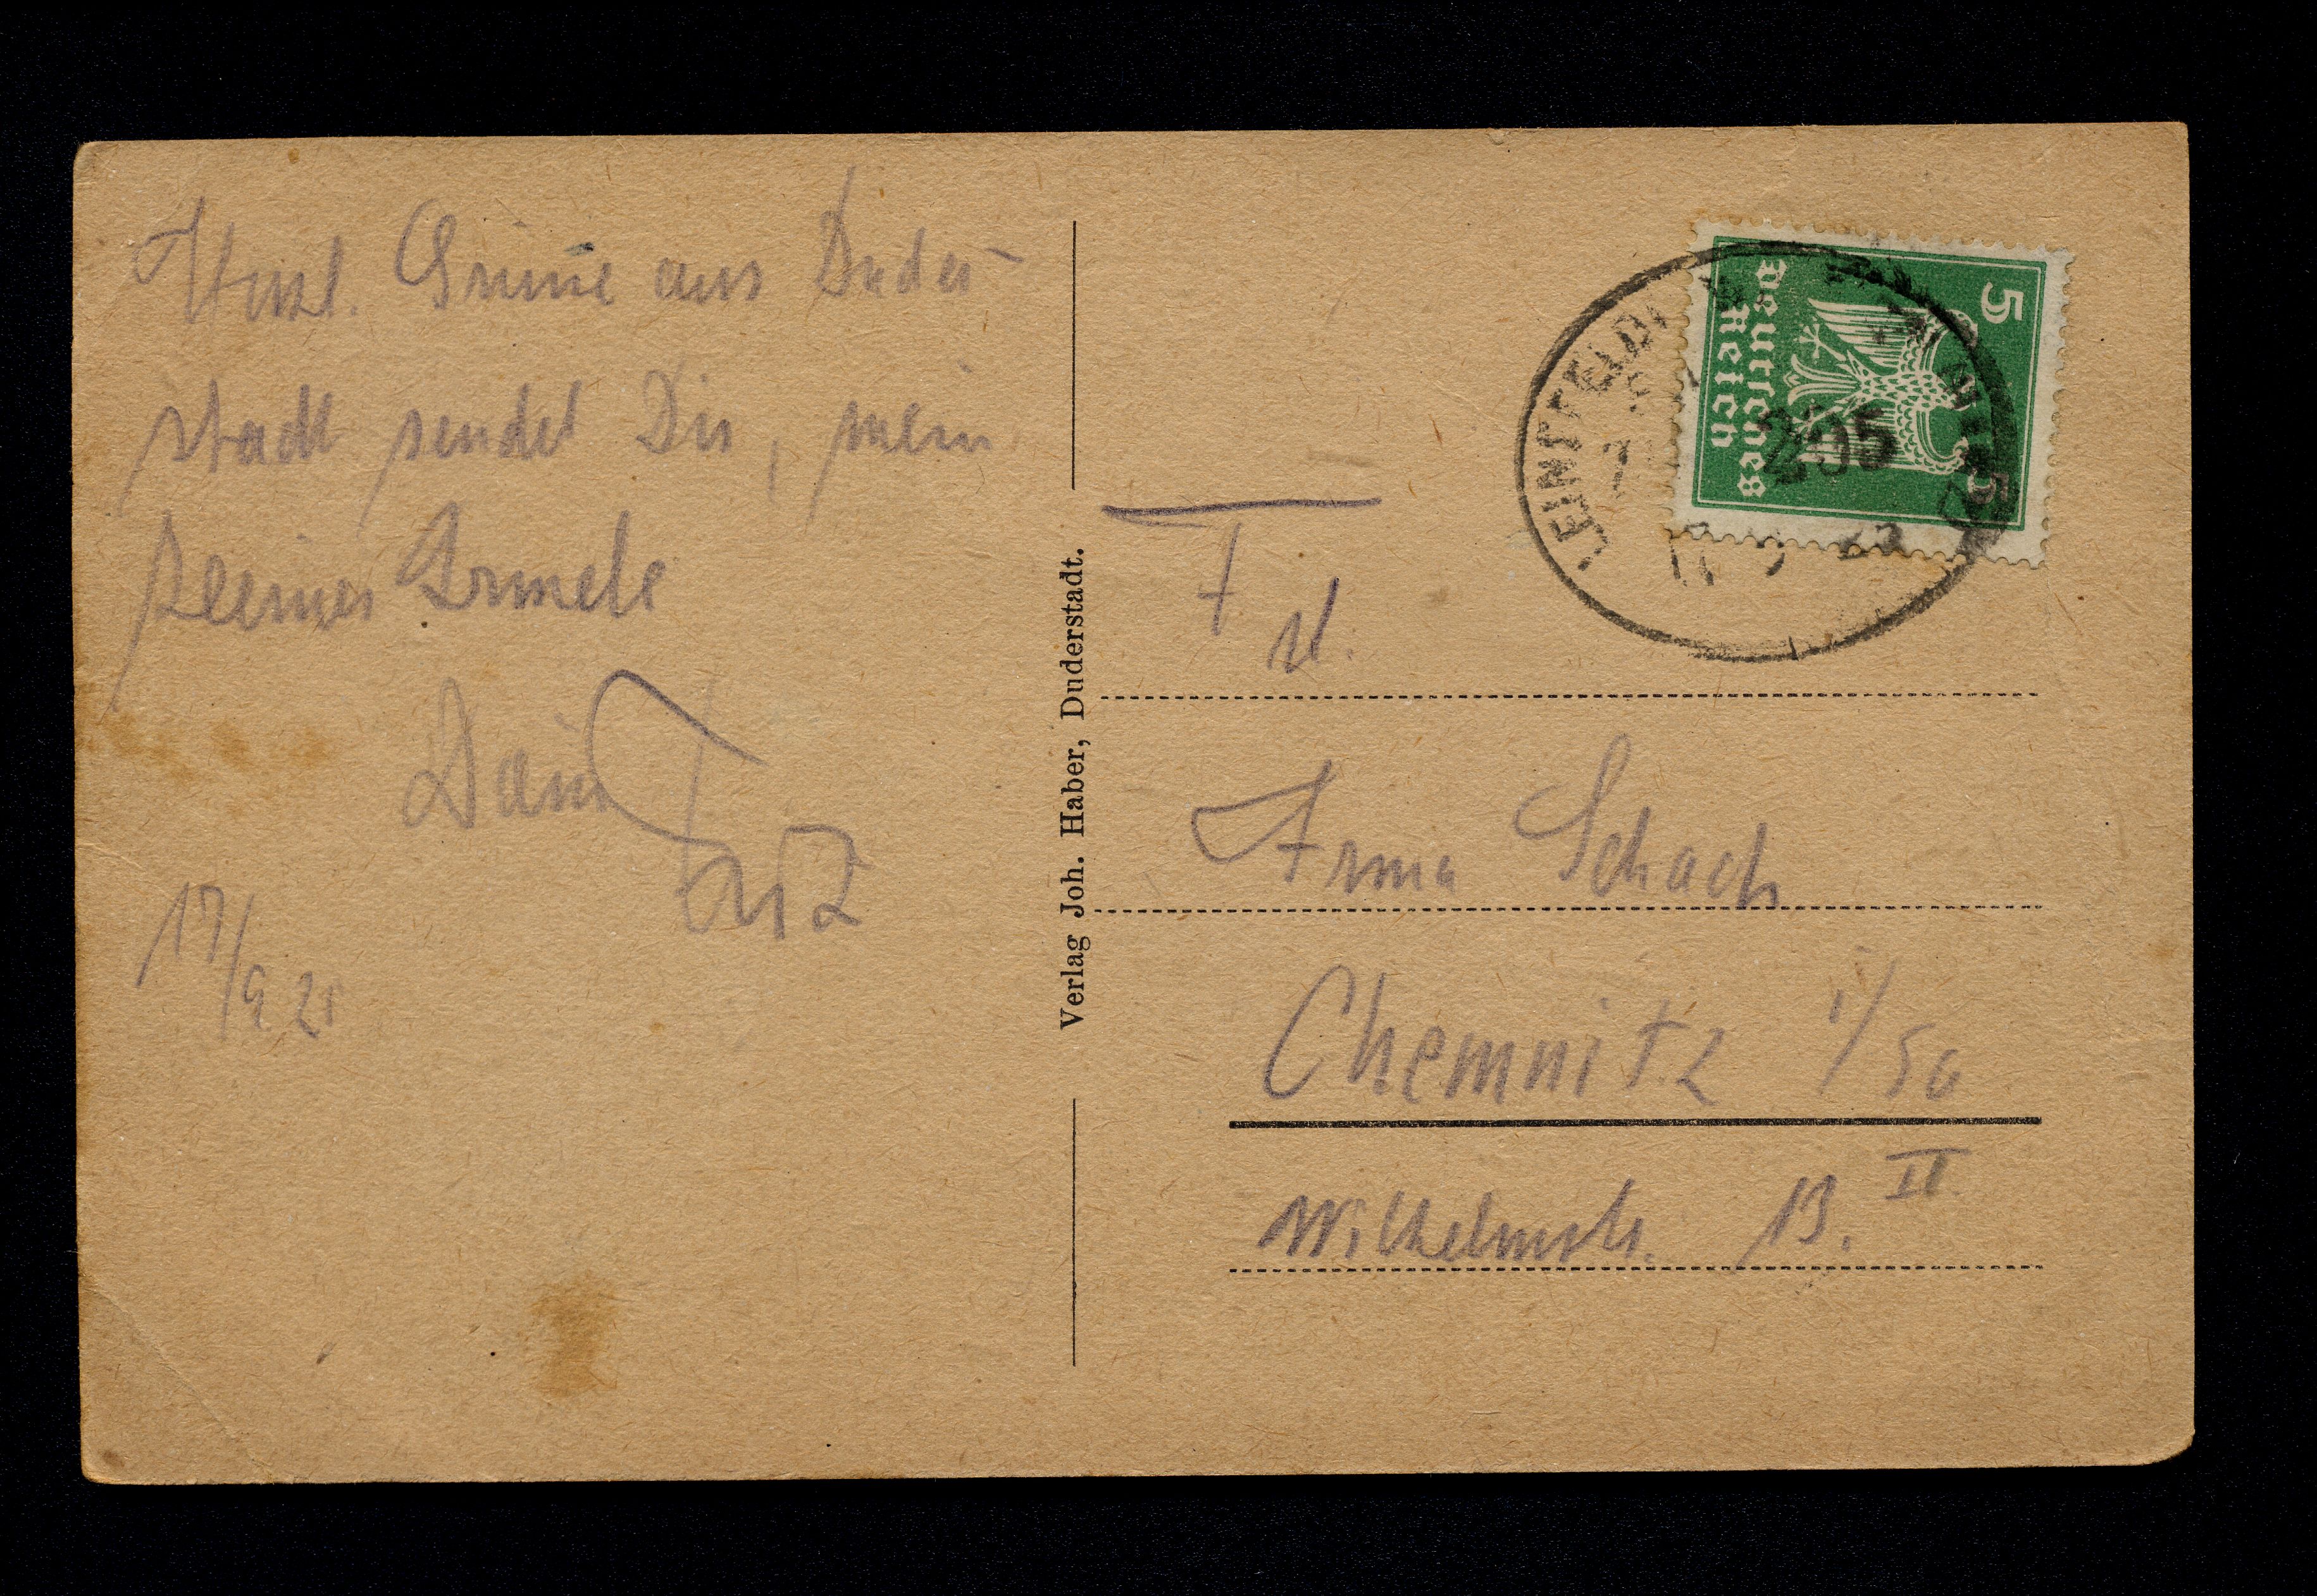 Herzl. Grüsse aus Duder-
stadt sendet Dir, mein
kleines Irmele
Dein
Fritz
17/9 25
Verlag Joh. Haber, Duderstadt.
Frl.
Irma Schach
Chemnitz i/Sa
Wilhelmstr. 13. II
5
Deutsches
Reich
5
LEINEFELDE
205